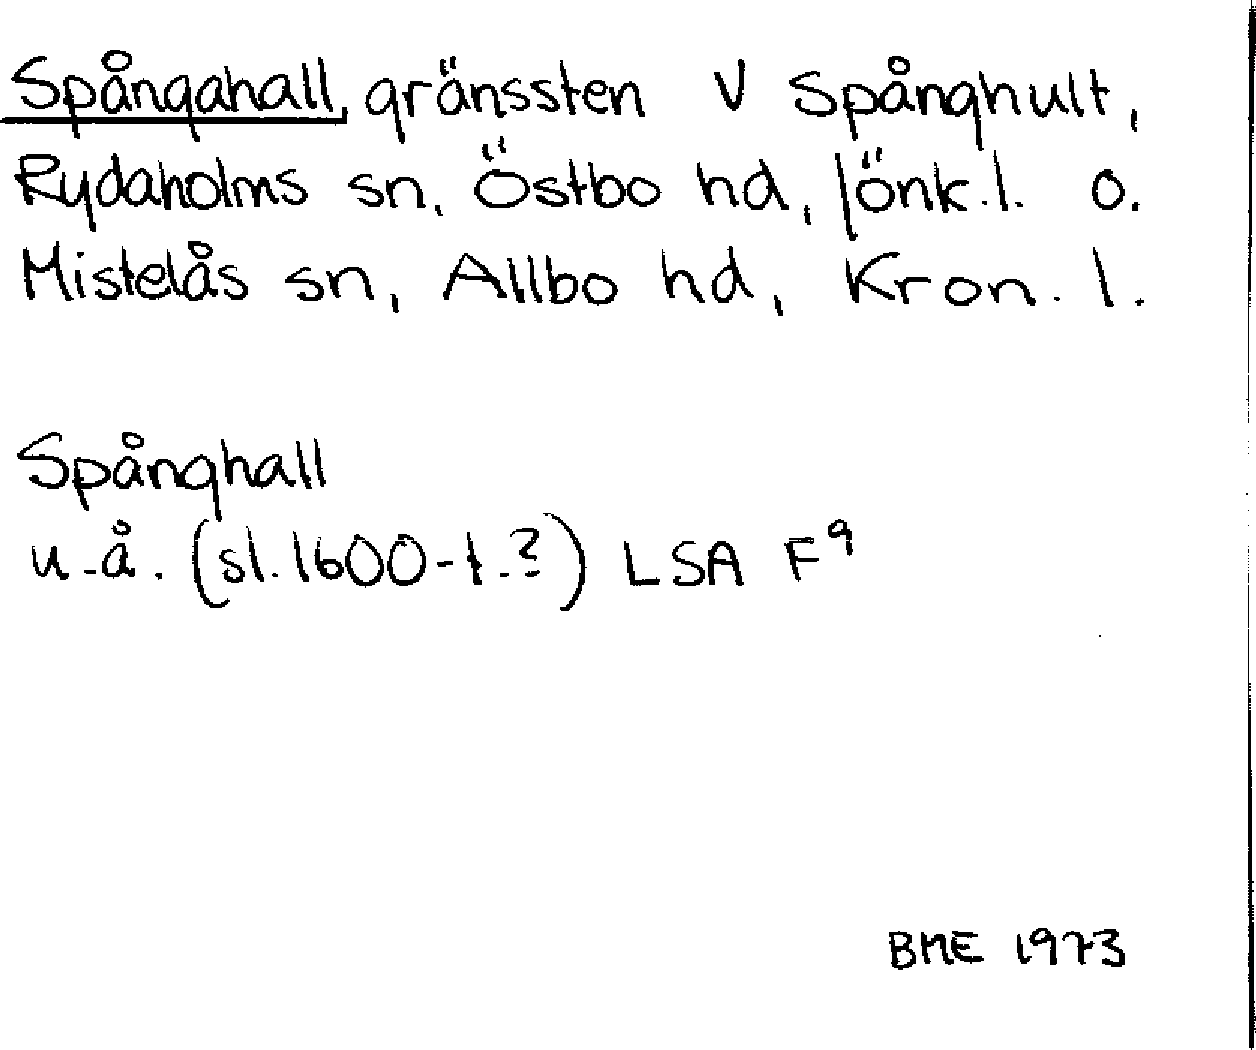 Spångahall, gränssten V Spånghult,
Rydaholms sn, Östbo hd, Jönk.l. o.
Mistelås sn, Allbo hd, Kron. l.
Spånghall
u.å. (sl.1600-t.?) LSA F⁹
BME 1973